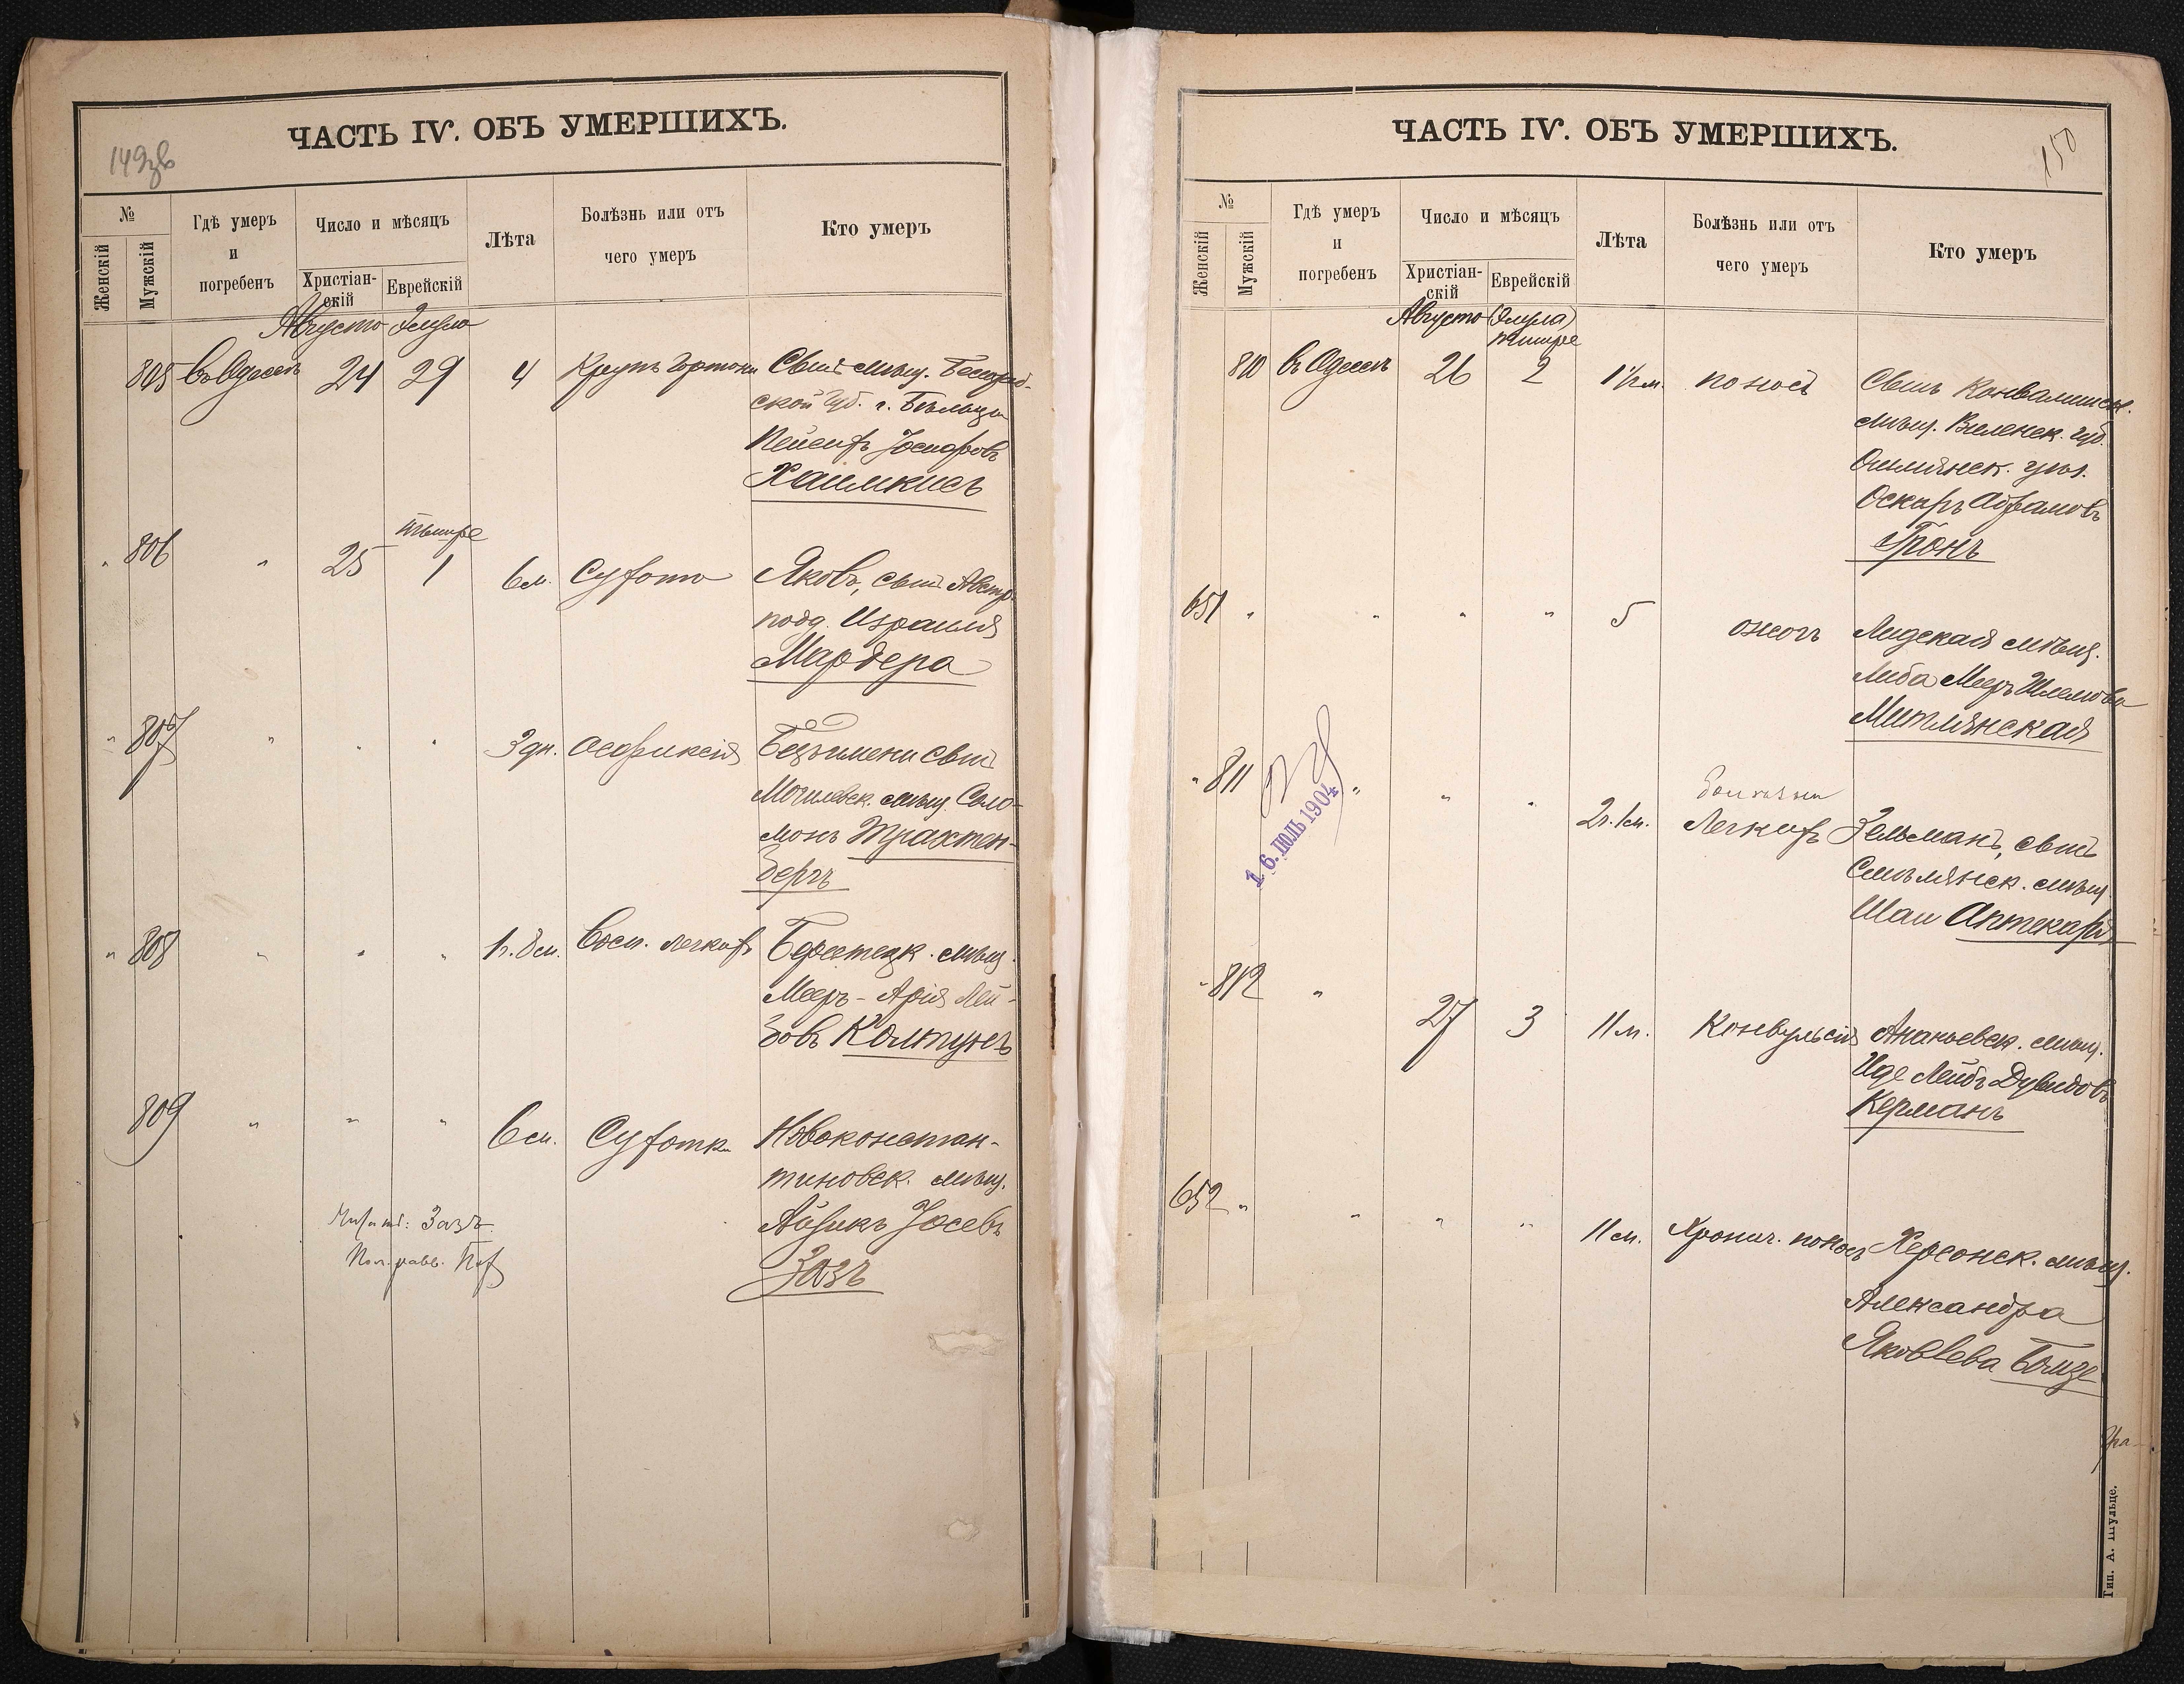 ЧАСТЬ IV. ОБЪ УМЕРШИХЪ.
№
Женскій
Мужскій
Гдѣ умеръ
и
погребенъ
Число и мѣсяцъ
Христіан-
скій
Еврейскій
Лѣта
Болѣзнь или отъ
чего умеръ
Кто умеръ
Августа Элула
805 въ Одессѣ 24 29 4 Крупъ гортани Сынъ мѣщ. Бессараб-
ской губ. г. Бѣльцы
Іосифовъ
Хаимкисъ
тышре
" 806 " 25 1 6 м. Сухота Яковъ, сынъ Австр.
подд. Израиля
Мардера
" 807 " " " 3 дн. Асфиксія Безъимени сынъ
Могилевск. мѣщ. Соло-
монъ Трахтен-
бергъ
" 808 " " " 1 г. 8 м. Восп. легкихъ Берестецк. мѣщ.
Мееръ-Арія Лей-
бовъ Колтунъ
809 " " " 6 м. Сухотка Новоконстан-
тиновск. мѣщ.
Айзикъ Іосевъ
Зазъ
Зазъ
ЧАСТЬ IV. ОБЪ УМЕРШИХЪ.
150
№
Женскій
Мужскій
Гдѣ умеръ
и
погребенъ
Число и мѣсяцъ
Христіан-
скій
Еврейскій
Лѣта
Болѣзнь или отъ
чего умеръ
Кто умеръ
Августа (Элула)
тишре
810 въ Одессѣ 26 2 1½ м. поносъ Сынъ
мѣщ. Виленск. губ.
Ошмянск. уѣз.
Оскаръ Абрамовъ
Гронъ
651 " " " " 5 ожогъ Лидская мѣщ.
Либа Меер Шлемова
Митлянская
" 811 " " " 2 г. 1 м. Легкихъ Зельманъ, сынъ
Смѣлянск. мѣщ.
Шаи Аптекаря
16. ІЮЛЬ 1904
" 812 " 27 3 11 м. Конвульсія Ананьевск. мѣщ.
Иде Лейбъ Дувидовъ
Керманъ
652 " " " " 11 м. Хронич. поносъ Херсонск. мѣщ.
Александра
Яковлева
Тип. А. Шульце.